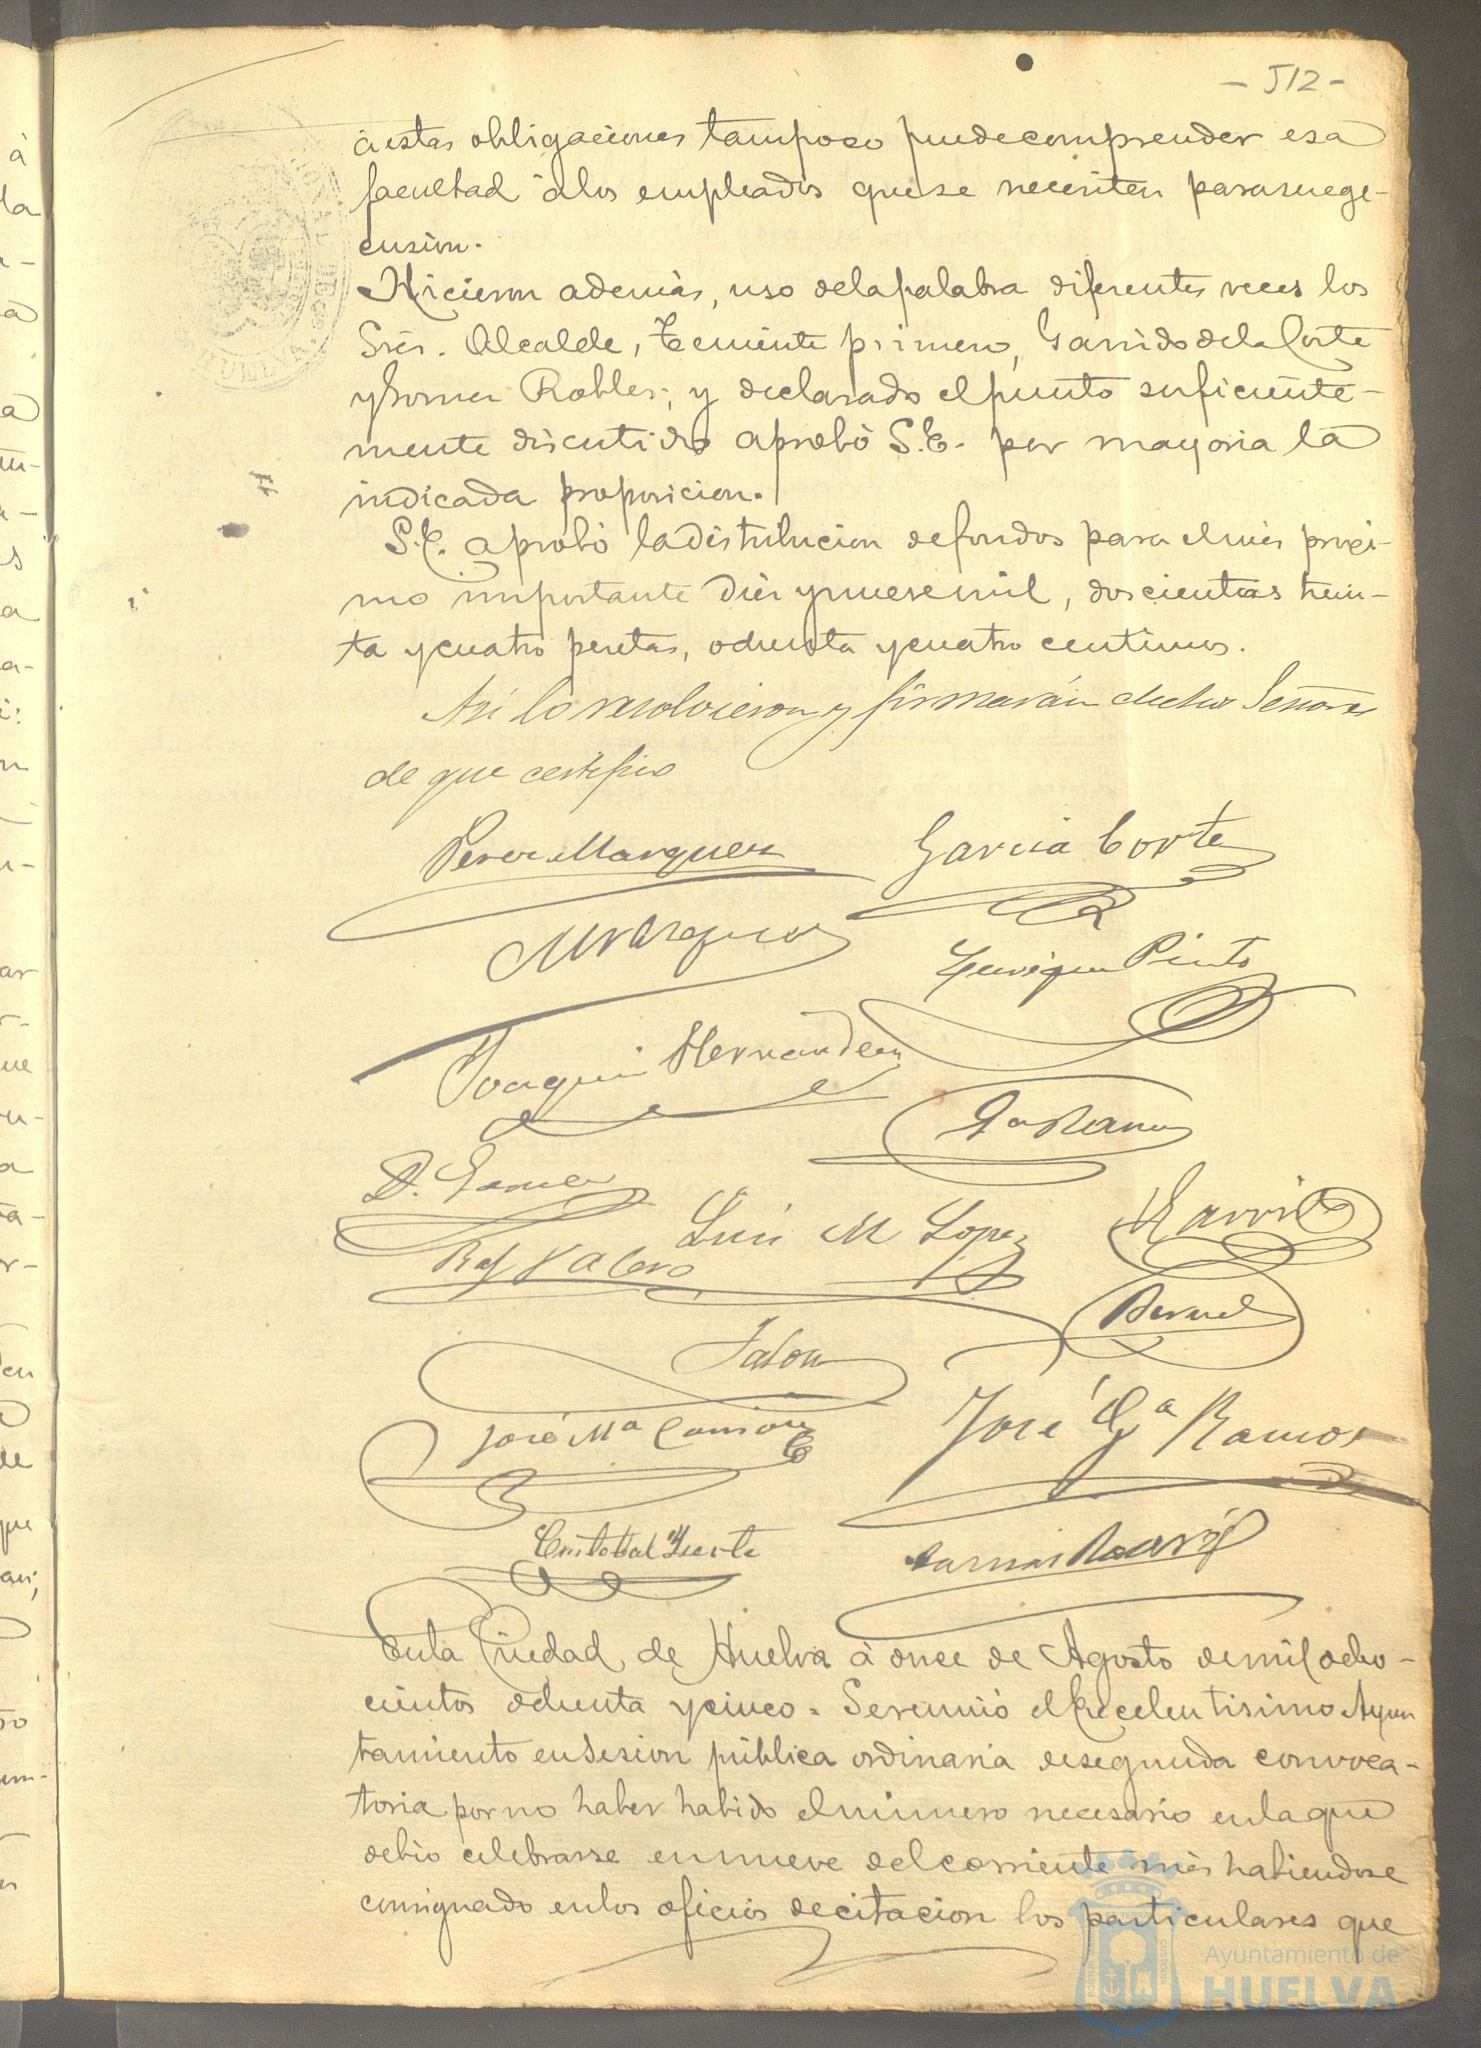 - 512 -
á estas obligaciones tampoco puede comprender esa
facultad á los empleados que se necesiten para su ege-
cusion.
Hicieron además, uso de la palabra diferentes veces los
Sres. Alcalde, Teniente primero, Garrido de la Corte
y Gomez Robles; y declarado el punto suficiente-
mente discutido aprobó S.E. por mayoria la
indicada proposicion.
S.E. aprobó la distribucion de fondos para el mes proxi-
mo importante diez y nueve mil, doscientas trein-
ta y cuatro pesetas, ochenta y cuatro centimos.
Asi lo resolvieron y firmarán dichos Señores
de que certifico
Perez Marquez
Garcia Corte
Marquez
Enrique Pinto
Joaquin Hernandez
Ga Ramos
D. Gomez
Luis M Lopez
Garrido
Raf Valero
Bernal
Jalon
José Mª
José Gª Ramos
Cristobal
En la Ciudad de Huelva á once de Agosto de mil ocho-
cientos ochenta y cinco = Se reunió el Excelentisimo Ayun
tamiento en sesion pública ordinaria de segunda convoca-
toria por no haber habido el número necesario en la que
debió celebrarse en nueve del corriente mes habiendose
consignado en los oficios de citacion los particulares que
Ayuntamiento de
HUELVA